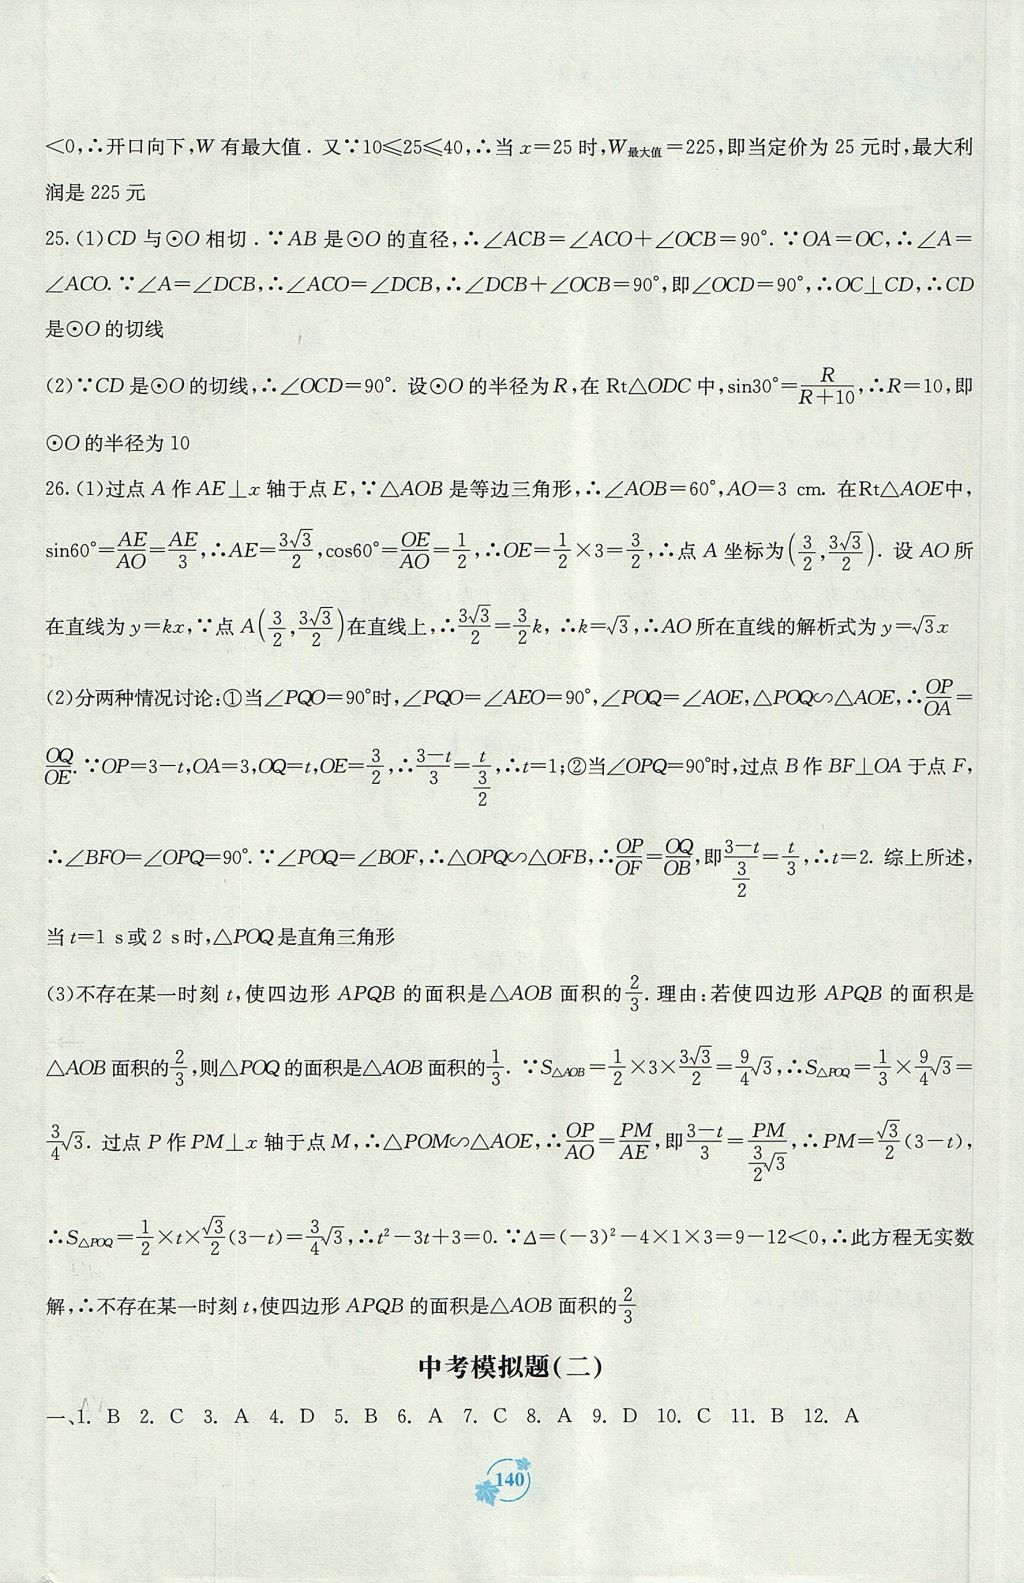 <0,∴开口向下,W 有最大值. 又∵10⩽25⩽40,∴当 x=25 时,W最大值=225,即当定价为 25 元时,最大利
润是 225 元
25. (1)CD 与⊙O 相切. ∵AB 是⊙O 的直径,∴∠ACB=∠ACO+∠OCB=90°. ∵OA=OC,∴∠A=
∠ACO. ∵∠A=∠DCB,∴∠ACO=∠DCB,∴∠DCB+∠OCB=90°,即∠OCD=90°,∴OC⊥CD,∴CD
是⊙O 的切线
(2)∵CD 是⊙O 的切线,∴∠OCD=90°. 设⊙O 的半径为 R,在 Rt△ODC 中,sin30°=R/(R+10),∴R=10,即
⊙O 的半径为 10
26. (1)过点 A 作 AE⊥x 轴于点 E,∵△AOB 是等边三角形,∴∠AOB=60°,AO=3 cm. 在Rt△AOE中,
sin60°=AE/AO=AE/3,∴AE=3√3/2,cos60°=OE/AO=1/2,∴OE=1/2×3=3/2,∴点 A 坐标为(3/2,3√3/2). 设 AO 所
在直线为 y=kx,∵点 A(3/2,3√3/2)在直线上,∴3√3/2=3/2k, ∴k=√3,∴AO 所在直线的解析式为 y=√3x
(2)分两种情况讨论:①当∠PQO=90°时,∠PQO=∠AEO=90°,∠POQ=∠AOE,△POQ∽△AOE,∴OP/OA=
OQ/OE. ∵OP=3-t,OA=3,OQ=t,OE=3/2,∴(3-t)/3=t/(3/2),∴t=1;②当∠OPQ=90°时,过点 B 作 BF⊥OA 于点 F,
∴∠BFO=∠OPQ=90°. ∵∠POQ=∠BOF,∴△OPQ∽△OFB,∴OP/OF=OQ/OB,即(3-t)/(3/2)=t/3,∴t=2. 综上所述,
当 t=1 s或 2 s时,△POQ 是直角三角形
(3)不存在某一时刻 t,使四边形 APQB 的面积是△AOB 面积的2/3. 理由:若使四边形 APQB 的面积是
△AOB 面积的2/3,则△POQ 的面积是△AOB 面积的1/3. ∵S△AOB=1/2×3×3√3/2=9/4√3,∴S△POQ=1/3×9/4√3=
3/4√3. 过点 P 作 PM⊥x 轴于点 M,∴△POM∽△AOE,∴OP/AO=PM/AE,即(3-t)/3=PM/(3/2√3),∴PM=√3/2(3-t),
∴S△POQ=1/2×t×√3/2(3-t)=3/4√3,∴t²-3t+3=0. ∵Δ=(-3)²-4×1×3=9-12<0,∴此方程无实数
解,∴不存在某一时刻 t,使四边形 APQB 的面积是△AOB 面积的2/3
中考模拟题(二)
一、1. B 2. C 3. A 4. D 5. B 6. A 7. C 8. A 9. D 10. C 11. B 12. A
140